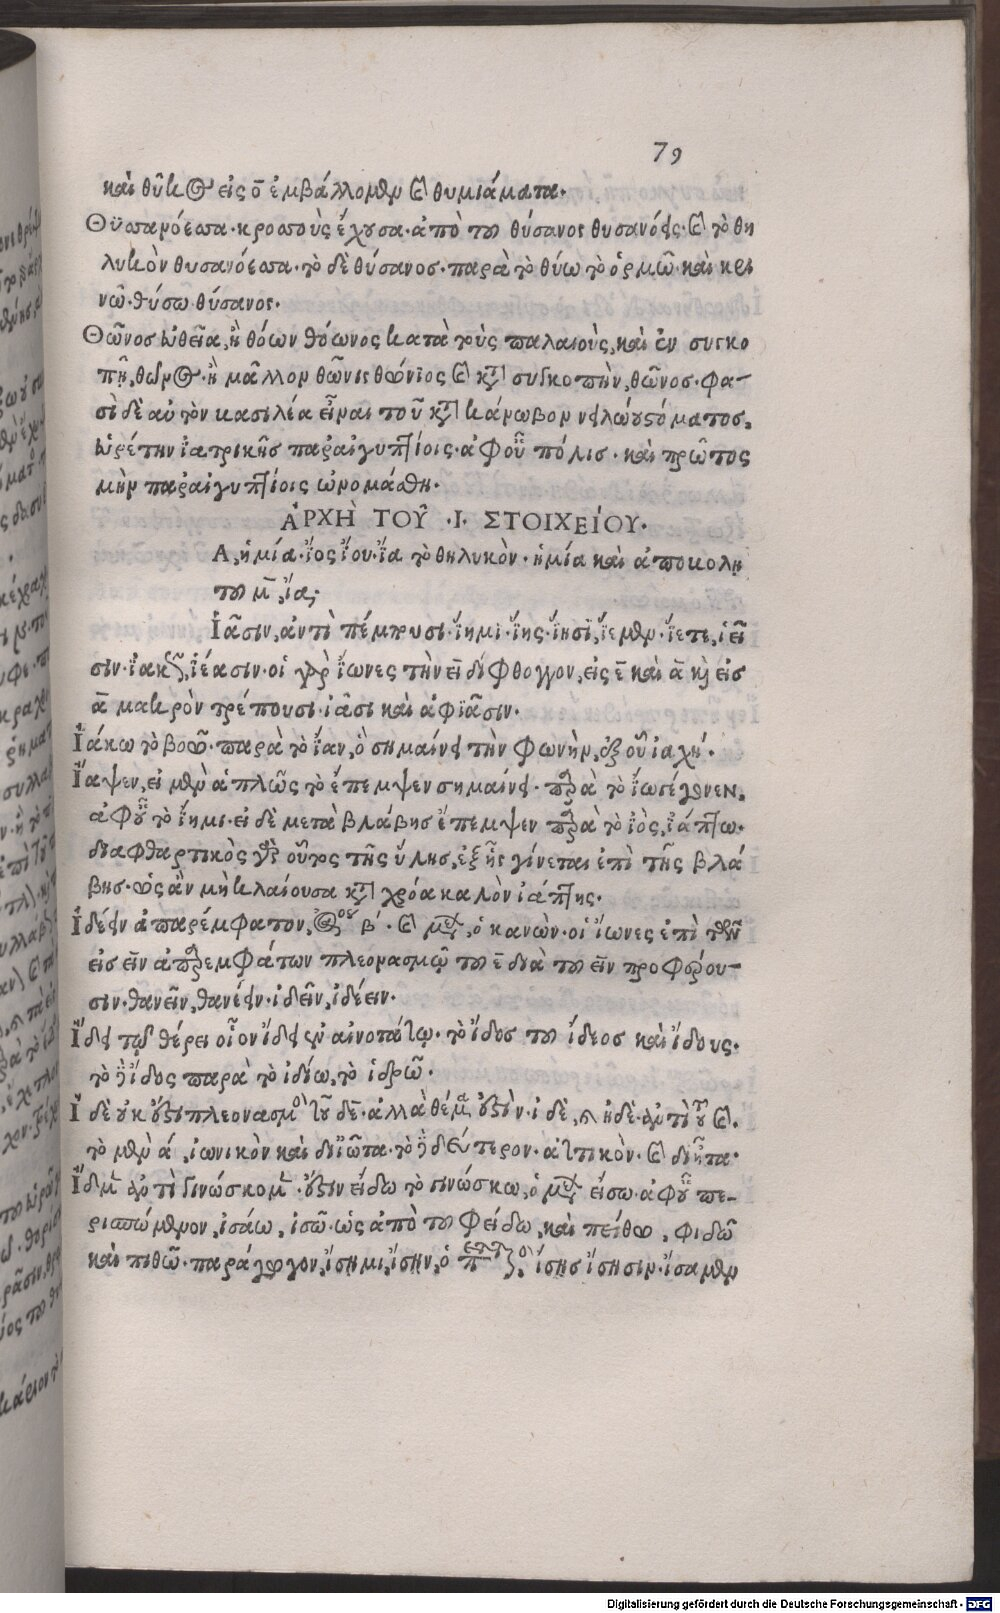 79
καὶ θύ εἰς ὃ ἐμβάλλομεν θυμιάματα·
Θϋσανόεσσα· κροσσοὺς ἔχουσα· ἀπὸ τοῦ θύσανος θυσανόεις· καὶ τὸ θη
λυκὸν θυσανόεσσα· τὸ δὲ θύσανος· παρὰ τὸ θύω τὸ ὁρμῶ καὶ κι
νῶ· θύσω θύσανος·
Θῶνος εὐθεῖα, ἢ θόων θόωνος κατὰ τοὺς παλαιοὺς, καὶ ἐν συγκο
πῇ, θῶν ἢ μᾶλλον θῶνις θώνιος καὶ κατὰ συγκοπὴν, θῶνος· φα-
σὶ δὲ αὐτὸν βασιλέα εἶναι τοῦ κατὰ κάνωβον νείλῴου στόματος,
εὑρέτην ἰατρικῆς παραιγυπτίοις· ἀφ οὗ πόλις· καὶ πρῶτος
μὴν παραιγυπτίοις ὠνομάσθη·
ἈΡΧῊ ΤΟΥ͂ ·Ι· ΣΤΟΙΧΕΊΟΥ·
Α, ἡ μία· ἴος ἴου· ἴα τὸ θηλυκὸν· ἡ μία καὶ ἀποκολῇ
τοῦ μ̄, ἴα;
Ἱᾶσιν, ἀντὶ πέμπουσι· ἵημι· ἵης· ἵησι, ἵεμεν· ἵετε, ἱεῖ
σιν· ἰακῶς, ἱέασιν· οἱ γὰρ ἴωνες τὴν ει δίφθογγον, εἰς ε̄ καὶ ᾱ καὶ εἰς
ᾱ μακρὸν τρέπουσι· ἱᾶσι καὶ ἀφιᾶσιν·
Ἰάκω τὸ βοῶ· παρὰ τὸ ἴαν, ὃ σημαίνει τὴν φωνὴν, ἐξ οὗ ἰαχή·
Ἴαψεν, εἰ μὲν ἁπλῶς τὸ ἔπεμψεν σημαίνει· παρὰ τὸ
ἀφ οὗ τὸ ἵημι· εἰ δὲ μετὰ βλάβης ἔπεμψεν παρὰ τὸ ἰὸς, ἰάπτω·
διαφθαρτικὸς γὰρ οὗτος τῆς ὕλης, ἐξ ἧς γίνεται ἐπὶ τῆς βλά
βης· ὡς ἂν μὴ κλαίουσα κατὰ χρόα καλὸν ἰάπτῃς·
Ἰδέειν ἀπαρέμφατον, β΄· ὁ κανὼν· οἱ ἴωνες ἐπὶ τῶν
εἰς εῖν ἀπαρεμφάτων πλεονασμῷ τοῦ ε̄ διὰ τοῦ εῖν προφέρου-
σιν· θανεῖν, θανέειν· ἰδεῖν, ἰδέειν·
Ἴδει τῷ θέρει οἷον ἴδει ἐν αἰνοτάτῳ· τὸ ἴδος τοῦ ἴδεος καὶ ἴδους·
τὸ δὲ ἴδος παρὰ τὸ ἰδίω, τὸ ἱδρῶ·
Ἰ δὲ οὐκ πλεονασμὸς τοῦ δὲ· ἀλλὰ θέμα ἐστὶν· ἰ δὲ, ἠδὲ· ἀντὶ τοῦ καὶ·
τὸ μὲν ά, ἰωνικὸν καὶ δι ἰῶτα· τὸ δὲ δεύτερον· ἀττικὸν· καὶ δι ἦτα·
Ἴδμεν ἀντὶ γινώσκομεν· ἔστιν εἴδω τὸ γινώσκω, ὁ μέλλων εἴσω· ἀφ οὗ πε-
ρισπώμενον, ἰσάω, ἰσῶ· ὡς ἀπὸ τοῦ φείδω, καὶ πείθω, φιδῶ
καὶ πιθῶ· παράγωγον, ἴσημι, ἴσην, ὁ ἴσης ἴσησιν· ἴσαμεν